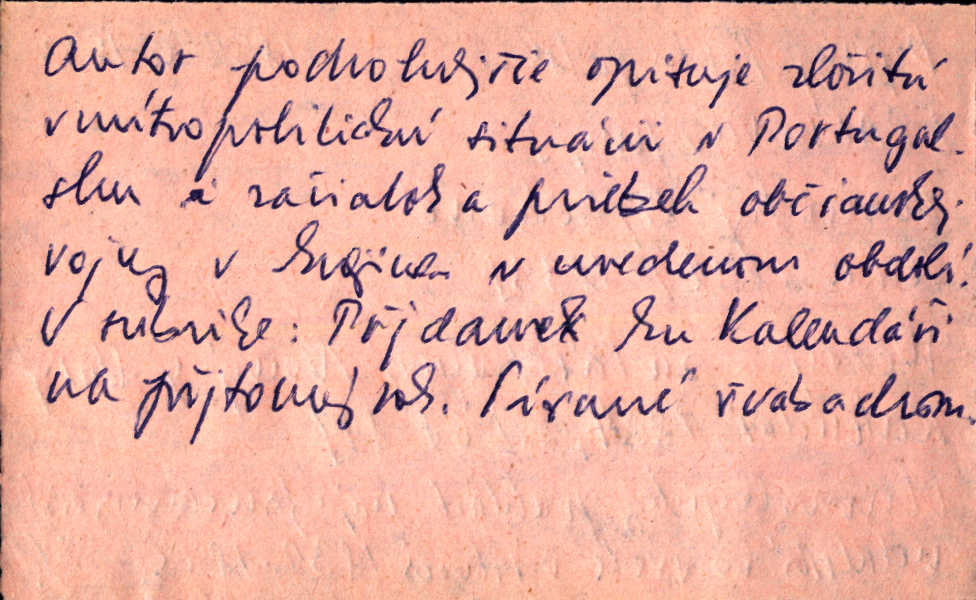 Autor podrobnejšie opisuje zložitú
vnútropolitickú situáciu v Portugal-
sku a začiatok a priebeh občianskej
vojny v krajine v uvedenom období.
V rubrike: Přjdawek ku Kalendáři
na přjtomný rok. Písané švabachom.